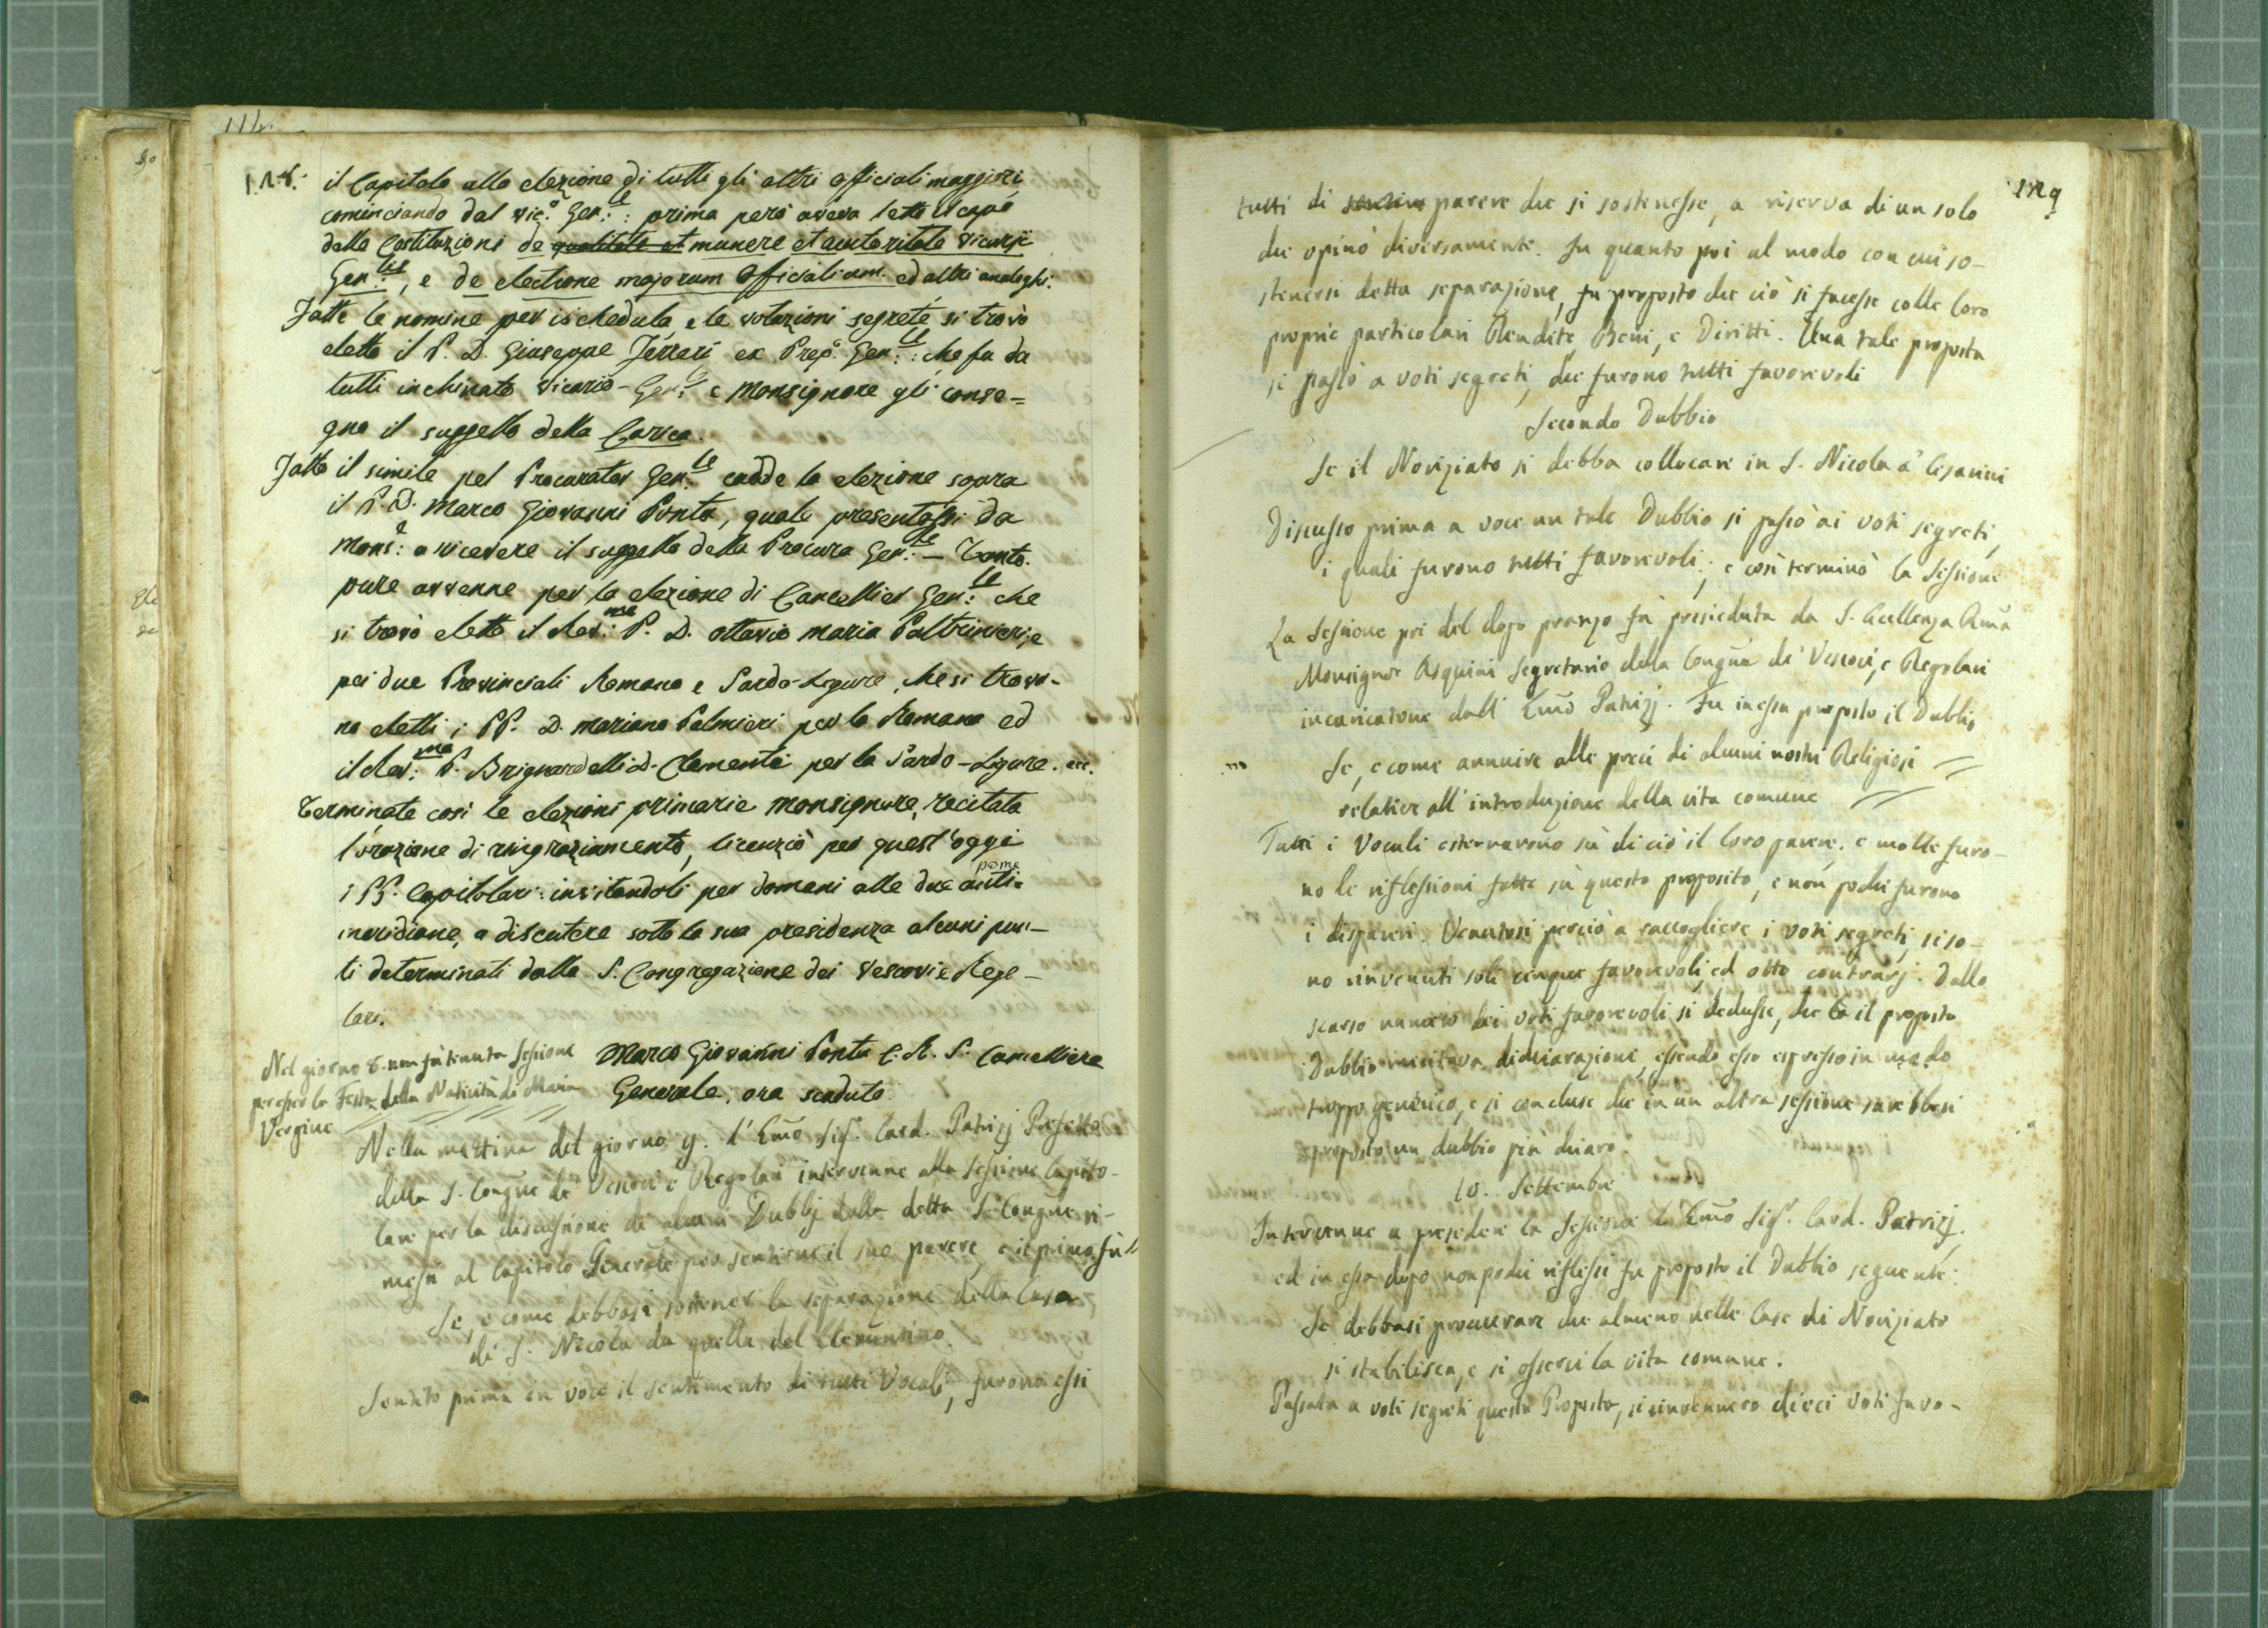 128.
il Capitolo alla elezione di tutti gli altri officiali maggiori,
cominciando dal Vic.º Gen:le : prima però aveva letto il capº
delle Costituzioni de qualitate et munere et autoritate Vicarji
Gen:lis, e de electione majorum Officialium. ed altri analoghi.
Fatte le nomine per ischedula, e le votazioni segrete, si trovò
eletto il P. D. Giuseppe Ferreri ex Prep.º Gen:le : che fu da
tutti inchinato Vicario-Gen:le e Monsignore gli conse=
gnò il suggello della Carica.
Fatto il simile pel Procurator Gen:le cadde la elezione sopra
il P. D. Marco Giovanni Ponta, quale presentossi da
Mons:e a ricevere il suggello della Procura Gen:le – Tanto
pure avvenne per la elezione di Cancellier Gen:le che
si trovò eletto il Rev:mo P. D. Ottavio Maria Paltrinieri, e
pei due Provinciali Romano e Sardo-Ligure, che si trova-
no eletti i PP. D. Mariano Palmieri per la Romana ed
il Rev:mo P. Brignardelli D. Clemente per la Sardo-Ligure. ecc.
Terminate così le elezioni primarie Monsignore, recitata
l'orazione di ringraziamento, licenziò per quest'oggi
i PP. Capitolari: invitandoli per domani alle due anti= pome
meridiane, a discutere sotto la sua presidenza alcuni pun-
ti determinati dalla S. Congregazione dei Vescovi e Rego-
lari.
Marco Giovanni Ponta C. R. S. Cancelliere
Generale, ora scaduto.
Nel giorno 8. non fù tenuta Sessione
per esser la Festa della Natività di Maria
Vergine
Nella mattina del giorno 9. l'Emo Sigr. Card. Patrizj Prefetto
della S. Congne de' Vescovi e Regolari intervenne alla Sessione Capito-
lare per la discussione di alcuni Dubbj dalla detta S. Congne ri-
messi al Capitolo Generale per sentirne il suo parere, e il primo fù
Se, e come debbasi sostener la separazione della Casa
di S. Nicola da quella del Clementino.
Sentito prima in voce il sentimento di tutti Vocali, furono essi
129
tutti di parere che si sostenesse, a riserva di un solo
che opinò diversamente. In quanto poi al modo con cui so-
stenersi detta separazione, fu proposto che ciò si facesse colle loro
proprie particolari Rendite, Beni, e Diritti. Una tale proposta
si passò a voti segreti, che furono tutti favorevoli
Secondo Dubbio
Se il Noviziato si debba collocare in S. Nicola a' Cesarini
Discusso prima a voce un tale Dubbio si passò ai voti segreti,
i quali furono tutti favorevoli; e così terminò la Sessione
La Sessione poi del dopo pranzo fù presieduta da S. Eccellenza Rma
Monsignor Asquini Segretario della Congne de' Vescovi, e Regolari
incaricatone dall' Emo Patrizj. Fu in essa proposto il Dubbio
Se, e come annuire alle preci di alcuni nostri Religiosi
relative all'introduzione della vita comune
Tutti i Vocali esternarono sù di ciò il loro parere, e molte furo-
no le riflessioni fatte sù questo proposito, e non pochi furono
i dispareri. Venutosi perciò a raccogliere i voti segreti, si so-
no rinvenuti soli cinque favorevoli, ed otto contrarj. Dallo
scarso numero dei voti favorevoli si dedusse, che il proposto
Dubbio meritava dichiarazione, essendo esso espresso in modo
troppo generico, e si concluse che in un altra sessione sarebbesi
proposto un dubbio più chiaro.
10. Settembre
Intervenne a presedere la Sessione l'Emo Sigr. Card. Patrizj.
ed in essa dopo non poche riflessi fu proposto il Dubbio seguente:
Se debbasi procurare che almeno nelle Case di Noviziato
si stabilisca, e si osservi la vita comune.
Passata a voti segreti questa Proposta, si rinvennero dieci voti favo-